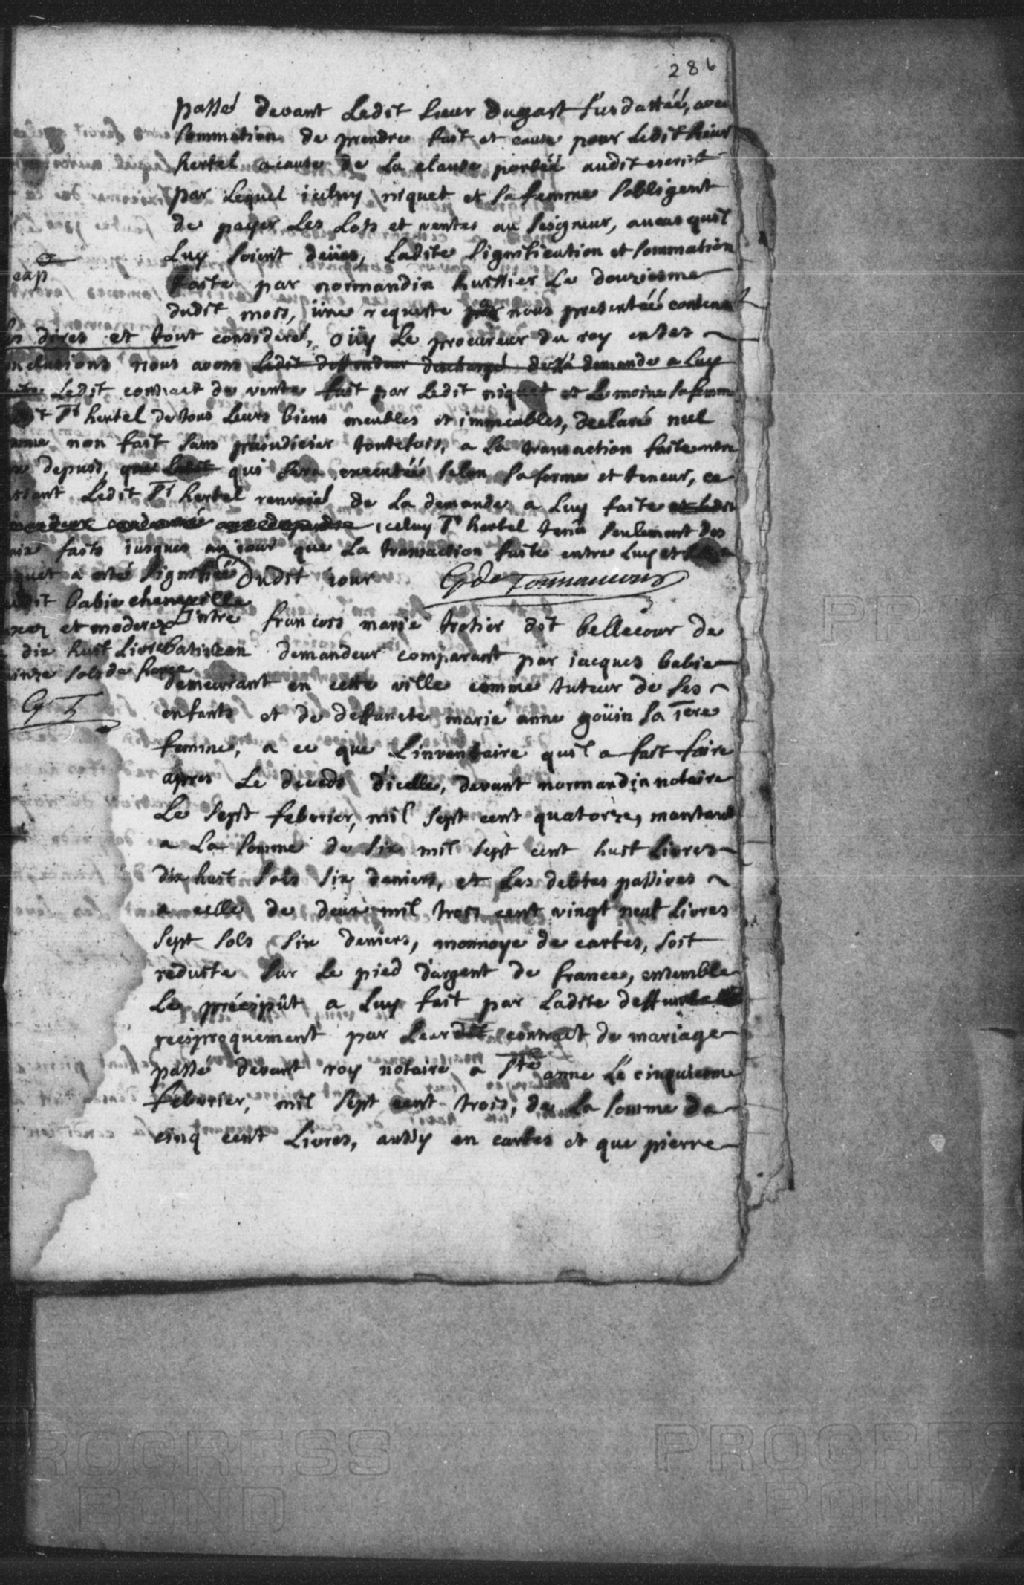 286
passé devant Ledit sieur dugast susdattéé, avec
sommation de prendre fait et cause pour Ledit sieur
hertel acause de La clause portéé audit escrit
par Lequel iceluy niquet et sa femme sobligent
de payer Les Lots et ventes au seigneur, aucas quil
Luy soient deües, Ladite signification et sommation
faite par normandin huissier Le douziesme
dudit mois, une requeste nous presentéé contenant
dires et tout consideré, oüy Le procureur du roy en ses
conclusions nous avons Ledit deffendeur deschargé de la demande a Luy
Ledit contract de vente fait par Ledit niquet et Lemoine sa femme
Sr hertel de tous Leurs biens meubles et immeubles, declaré nul
comme non fait sans prejudicier toutefois, a La transaction faite entre
depuis, qui sera executéé selon sa forme et teneur, ce
faisant Ledit Sr hertel renvoyé de La demande a Luy faite
iceluy Sr hertel tenu seulement des
frais faits jusques au jour que La transaction faite entre Luy et
niquet a esté signifiéé Dudit jour G de Tonnancour
Ledit babie chenneville
et moderez Entre francois marie trotier dit bellecour de
dix huit Livres batiscan demandeur comparant par jacques babie
quinze sols de france
demeurant en cette ville comme tuteur de ses
G T
enfants et de deffuncte marie anne goüin sa 1ere
femme, a ce que Linventaire quil a fait faire
apres Le deceds d'icelle, devant normandin notaire
Le sept febvrier, mil sept cent quatorze, montant
a La somme de six mil sept cent huit Livres
dix huit sols six deniers, et Les debtes passives
a celle de deux mil trois cent vingt neuf Livres
sept sols six deniers, monnoye de cartes, soit
reduite sur Le pied d'argent de france, ensemble
Le préciput a Luy fait par Ladite deffuncte
reciproquement par Leur dit contract de mariage
passé devant roy notaire a Ste anne Le cinquiesme
febvrier, mil sept cent trois, de La somme de
cinq cent Livres, aussy en cartes et que pierre